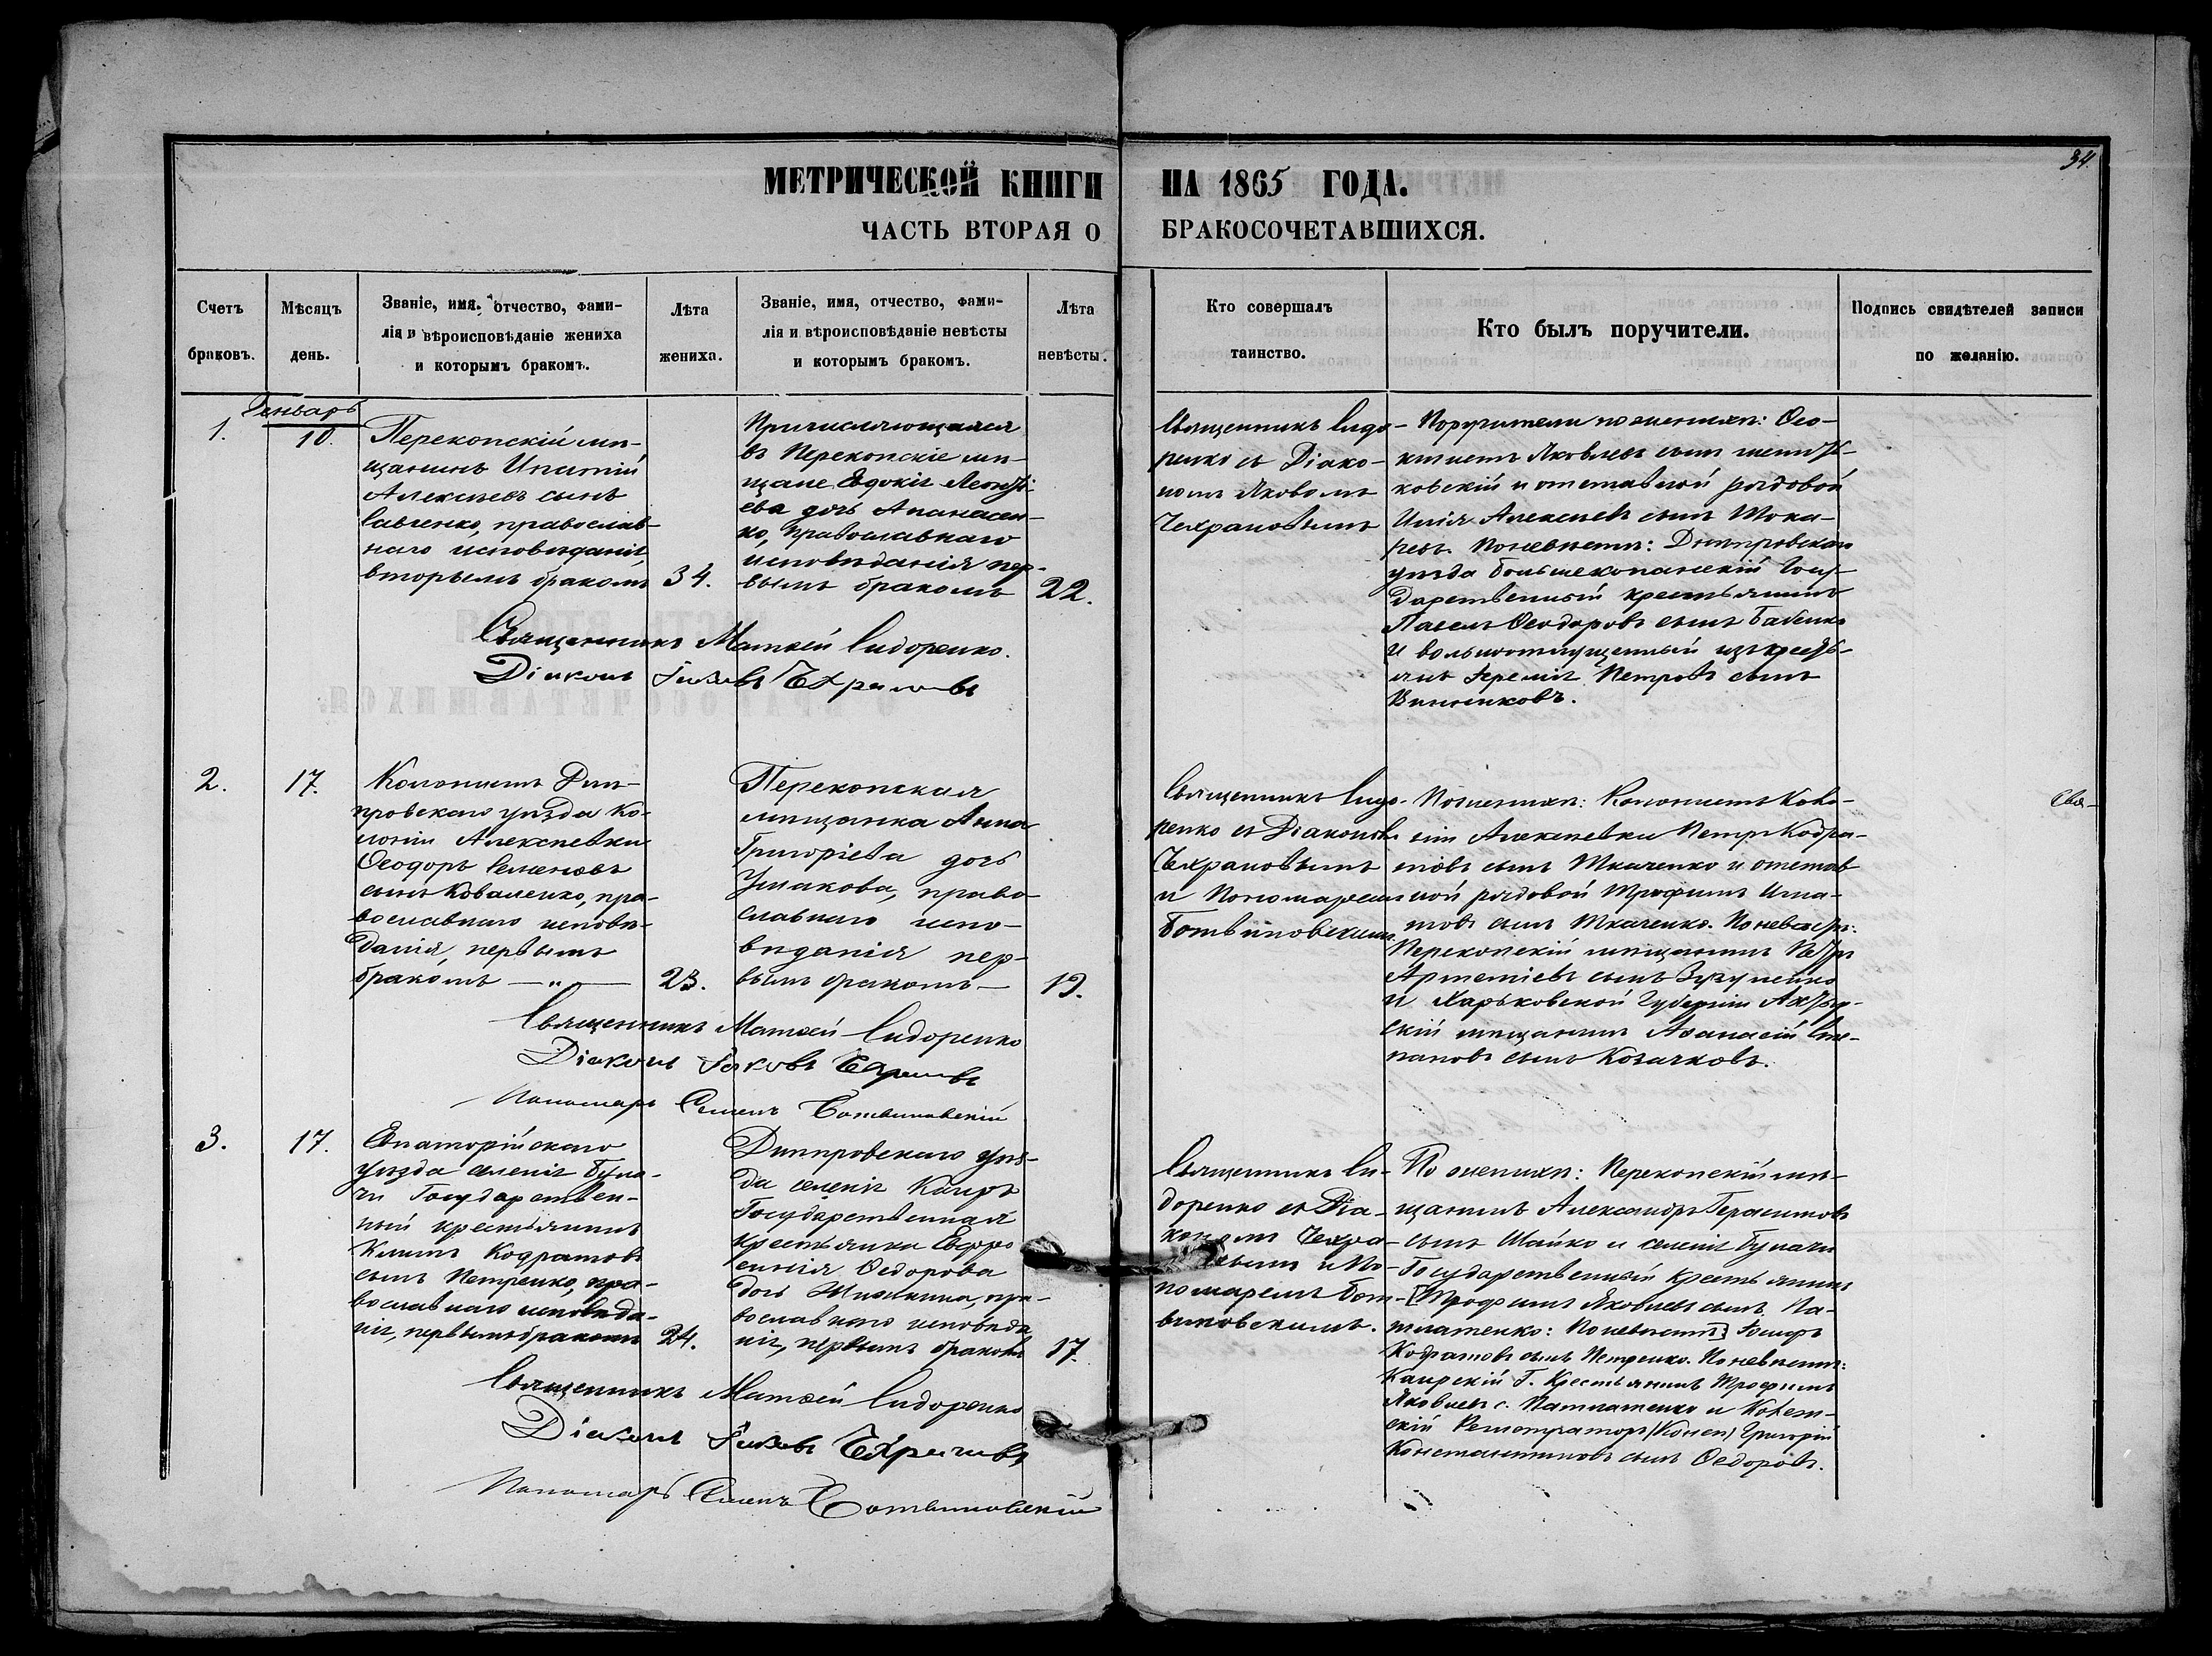 34.
МЕТРИЧЕСКОЙ КНИГИ НА 1865 ГОДА.
ЧАСТЬ ВТОРАЯ О БРАКОСОЧЕТАВШИХСЯ.
Счетъ
браковъ.
Мѣсяцъ
день.
Званіе, имя, отчество, фами-
лія и вѣроисповѣданіе жениха
и которымъ бракомъ.
Лѣта
жениха.
Званіе, имя, отчество, фами-
лія и вѣроисповѣданіе невѣсты
и которымъ бракомъ.
Лѣта
невѣсты.
Кто совершалъ
таинство.
Кто былъ поручители.
Подпись свидѣтелей записи
по желанію.
Генварь
1.
10.
Перекопскій мѣ-
щанинъ Ипатій
Алексѣевъ сынъ
Савченко, православ-
наго исповѣданія,
вторымъ бракомъ
34.
Причисляющаяся
въ Перекопскіе мѣ-
щане Евдокія Леонтi-
ева дочь Апанасен-
ко, православнаго
исповѣданія пер-
вымъ бракомъ
22.
Священникъ Сидо-
ренко съ Діако-
номъ Яковомъ
Чехрановымъ
Поручители по женихѣ: Ѳео-
ктистъ Яковлевъ сынъ
и отставной рядовой
Илія Алексѣевъ сынъ Тока-
ревъ. По невѣстѣ: Днѣпровскаго
уѣзда большекопанскій Госу-
дарственный крестьянинъ
Павелъ Ѳеодоровъ сынъ Бабенко
и вольноотпущенный изъ кресть-
янъ Іеремія Петровъ сынъ
Винниковъ.
Священникъ Матѳей Сидоренко.
Діаконъ Іаковъ Чехрановъ
2.
17.
Колонистъ Днѣ-
провскаго уѣзда Ко-
лоніи Алексѣевки
Ѳеодоръ Семеновъ
сынъ Коваленко, пра-
вославнаго исповѣ-
данія, первымъ
бракомъ — „ —
23.
Перекопская
мѣщанка Анна
Григоріева дочь
Ушакова, право-
славнаго испо-
вѣданія пер-
вымъ бракомъ —
19.
Священникъ Сидо-
ренко съ Діакономъ
Чехрановымъ
и Пономаремъ
Ботвиновскимъ.
По женихѣ: Колонистъ Коло-
ніи Алексѣевки Петръ Кодра-
товъ сынъ Ткаченко и отстав-
ной рядовой Трофимъ Игна-
товъ сынъ Ткаченко. По невѣстѣ:
Перекопскій мѣщанинъ Петръ
Артеміевъ сынъ
и Харьковской Губерніи Ахтыр-
скій мѣщанинъ Аѳанасій Сте-
пановъ сынъ Козачковъ.
Свя-
Священникъ Матѳей Сидоренко
Діаконъ Іаковъ Чехрановъ
Пономарь Семенъ Ботвиновскій
3.
17.
Евпаторійскаго
уѣзда селенія Була-
чи Государствен-
ный крестьянинъ
Климъ Кодратовъ
сынъ Петренко, пра-
вославнаго исповѣда-
нія, первымъ бракомъ
24.
Днѣпровскаго уѣз-
да селенія Каиръ
Государственная
крестьянка Евфро-
синія Ѳедорова
дочь Шишкина, пра-
вославнаго исповѣда
нія, первымъ бракомъ
17.
Священникъ Си-
доренко съ Діа-
кономъ Чехра-
новымъ и По-
номаремъ Бот-
виновскимъ.
По женихѣ: Перекопскій мѣ-
щанинъ Александръ Герасимовъ
сынъ Шайко и селенія Булачи
Государственный крестьянинъ
[Трофимъ Яковлевъ сынъ Па-
тлатенко: По невѣстѣ] Іосифъ
Кодратовъ сынъ Петренко. По невѣстѣ:
Каирскій Г. Крестьянинъ Трофимъ
Яковлевъ с. Патлатенко и
Григорій
Константиновъ сынъ Ѳедоровъ.
Священникъ Матѳей Сидоренко
Діаконъ Іаковъ Чехрановъ
Пономарь Семенъ Ботвиновскій